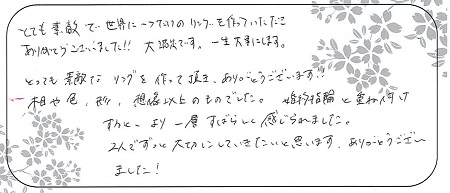 とても素敵で世界に一つだけのリングを作っていただき
ありがとうございました!! 大満足です。一生大事にします。
とっても素敵なリングを作って頂き、ありがとうございます!!
木目や色、形、想像以上のものでした。婚約指輪と重ね付け
すると、より一層すばらしく感じられました。
2人でずっと大切にしていきたいと思います。ありがとうござい
ました!